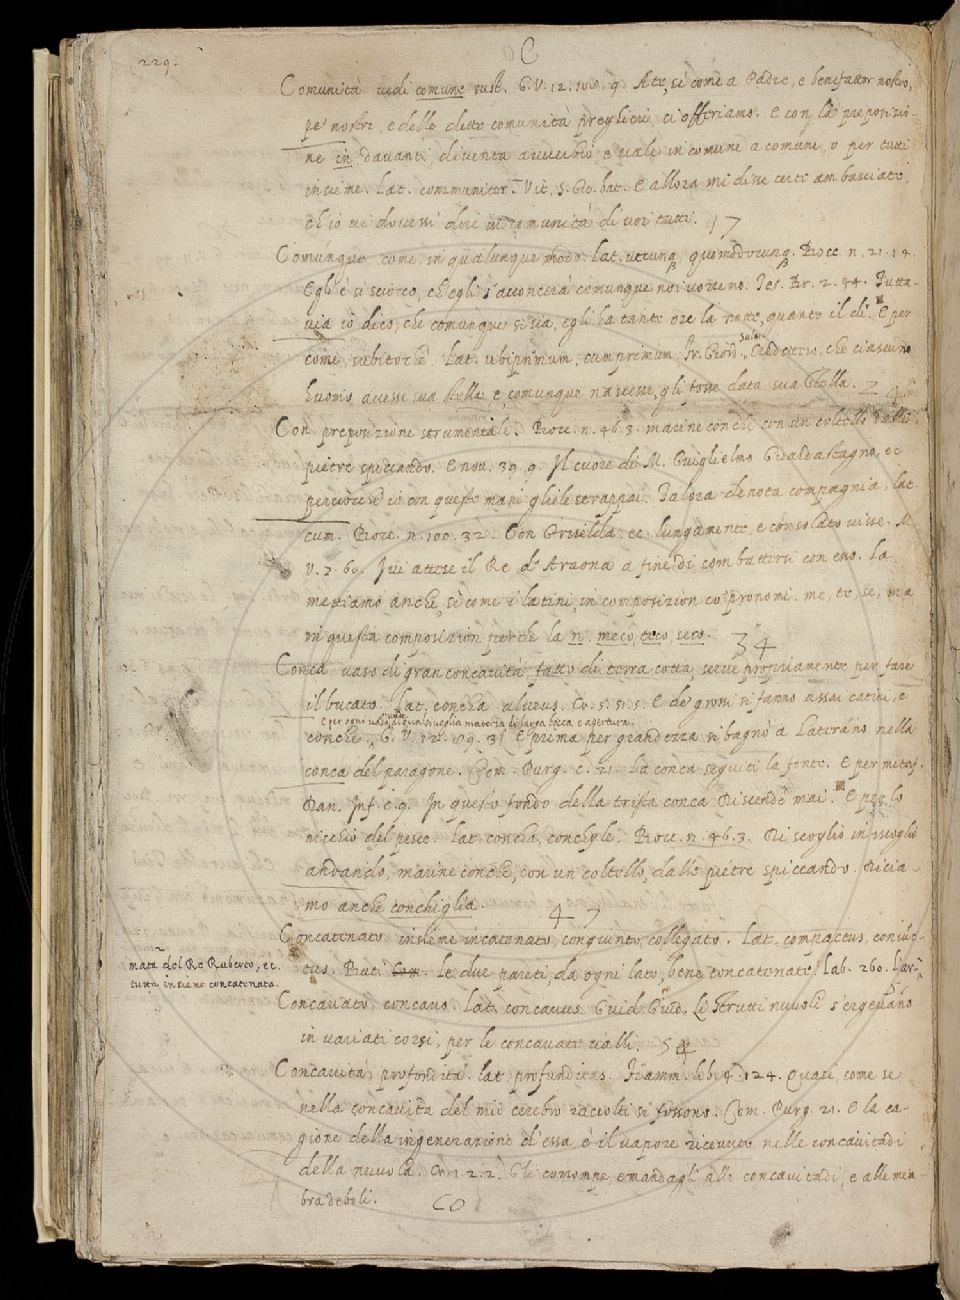 229.
C
Comunità vedi comune sust. G.V. 12. 108. 9. Ate, sì come a Padre, e benefattor nostro,
pe' nostri, e delle dette comunità preghieri, ci offriamo. E con la preposizio-
ne in, davanti, diventa avverbio, e vale in comune a comune, o per tutti
insieme. Lat. communiter. Vit. S. Gio. bat. E allora mi disse certe ambasciate,
ch'io vi dovessi dire in comunità di voi tutti. 17
Comunque, come, in qualunque modo. Lat. utcunq, quomodocunq. Bocc. n. 21. 14.
Egli è sì sciocco, ch'egli s'acconcerà comunque noi vorremo. Tes. Br. 2. 44. Tutta-
via io dico, che comunque si sia, egli ha tante ore la notte, quante il dì. E per
come, subitochè. Lat. ubiprimum, cumprimum. Fr. Giord. Salv. Credettero, che ciascuno
huomo avesse sua stella e, comunque nascesse, gli fosse data sua Stella. 24
Con preposizione strumentale. Bocc. n. 46. 3. marine conche con un coltello dalle
pietre spiccando. E nov. 39. 9. Il cuore di M. Guiglielmo Gualdastagno, ec
perciocchè io con queste mani gliele strappai. Talora denota compagnia, lat.
cum. Bocc. n. 100. 32. Con Griselda, ec. lungamente, e consolato visse. M.
V. 2. 60. Ivi attese il Re d'Araona a fine di combattersi con eno. La
mettiamo anche, sì come i latini, in composizion co' pronomi. me, te, se, ma
in questa composizion perde la n. meco, teco, seco. 34
Conca vaso di gran concavità, fatto di terra cotta, serve propriamente per fare
il bucato. Lat. concha alveus. Cr. 5. 51. 5. E de' grossi si fanno assai catini, e
E per ogni vaso, di qualsivoglia materia di larga bocca e apertura.
conche. G. V. 12. 89. 3. E prima per grandezza si bagnò a Laterano nella
conca del paragone. Com. Purg. c. 21. La conca seguiti la fonte. E per metaf.
Dan. Inf. c. 9. In questo fondo della trista conca Discende mai. E per lo
nicchio del pesce. Lat. concha, conchyle. Bocc. n. 46. 3. Di scoglio in iscoglio
andando, marine conche, con un coltello, dalle pietre spiccando. Dicia-
mo anche conchiglia. 47
Concatenato insieme incatenato, congiunto, collegato. Lat. compactus, coniũc-
tus. Le due pareti, da ogni lato, bene concatenate. Lab. 260. L'ar-
mata del Re Ruberto, ec.
tutta insieme concatenata.
Concavato concavo. Lat. concavus. Guid. Giud. Li Frutti nuvoli s'ergevano
in variati corsi, per le concavate valli. 54
Concavità profondità. lat. profunditas. Fiamm. lib. 4. 124. Quasi, come se
nella concavità del mio cerebro raccolti si fossono. Com. Purg. 21. E la ca-
gione della ingenerazione d'essa, è il vapore ricevuto nelle concavitadi
della nuvola. Cr. 1. 2. 2. Gli corrompe, e mandagli alle concavitadi, e alle mem-
bra deboli. CO